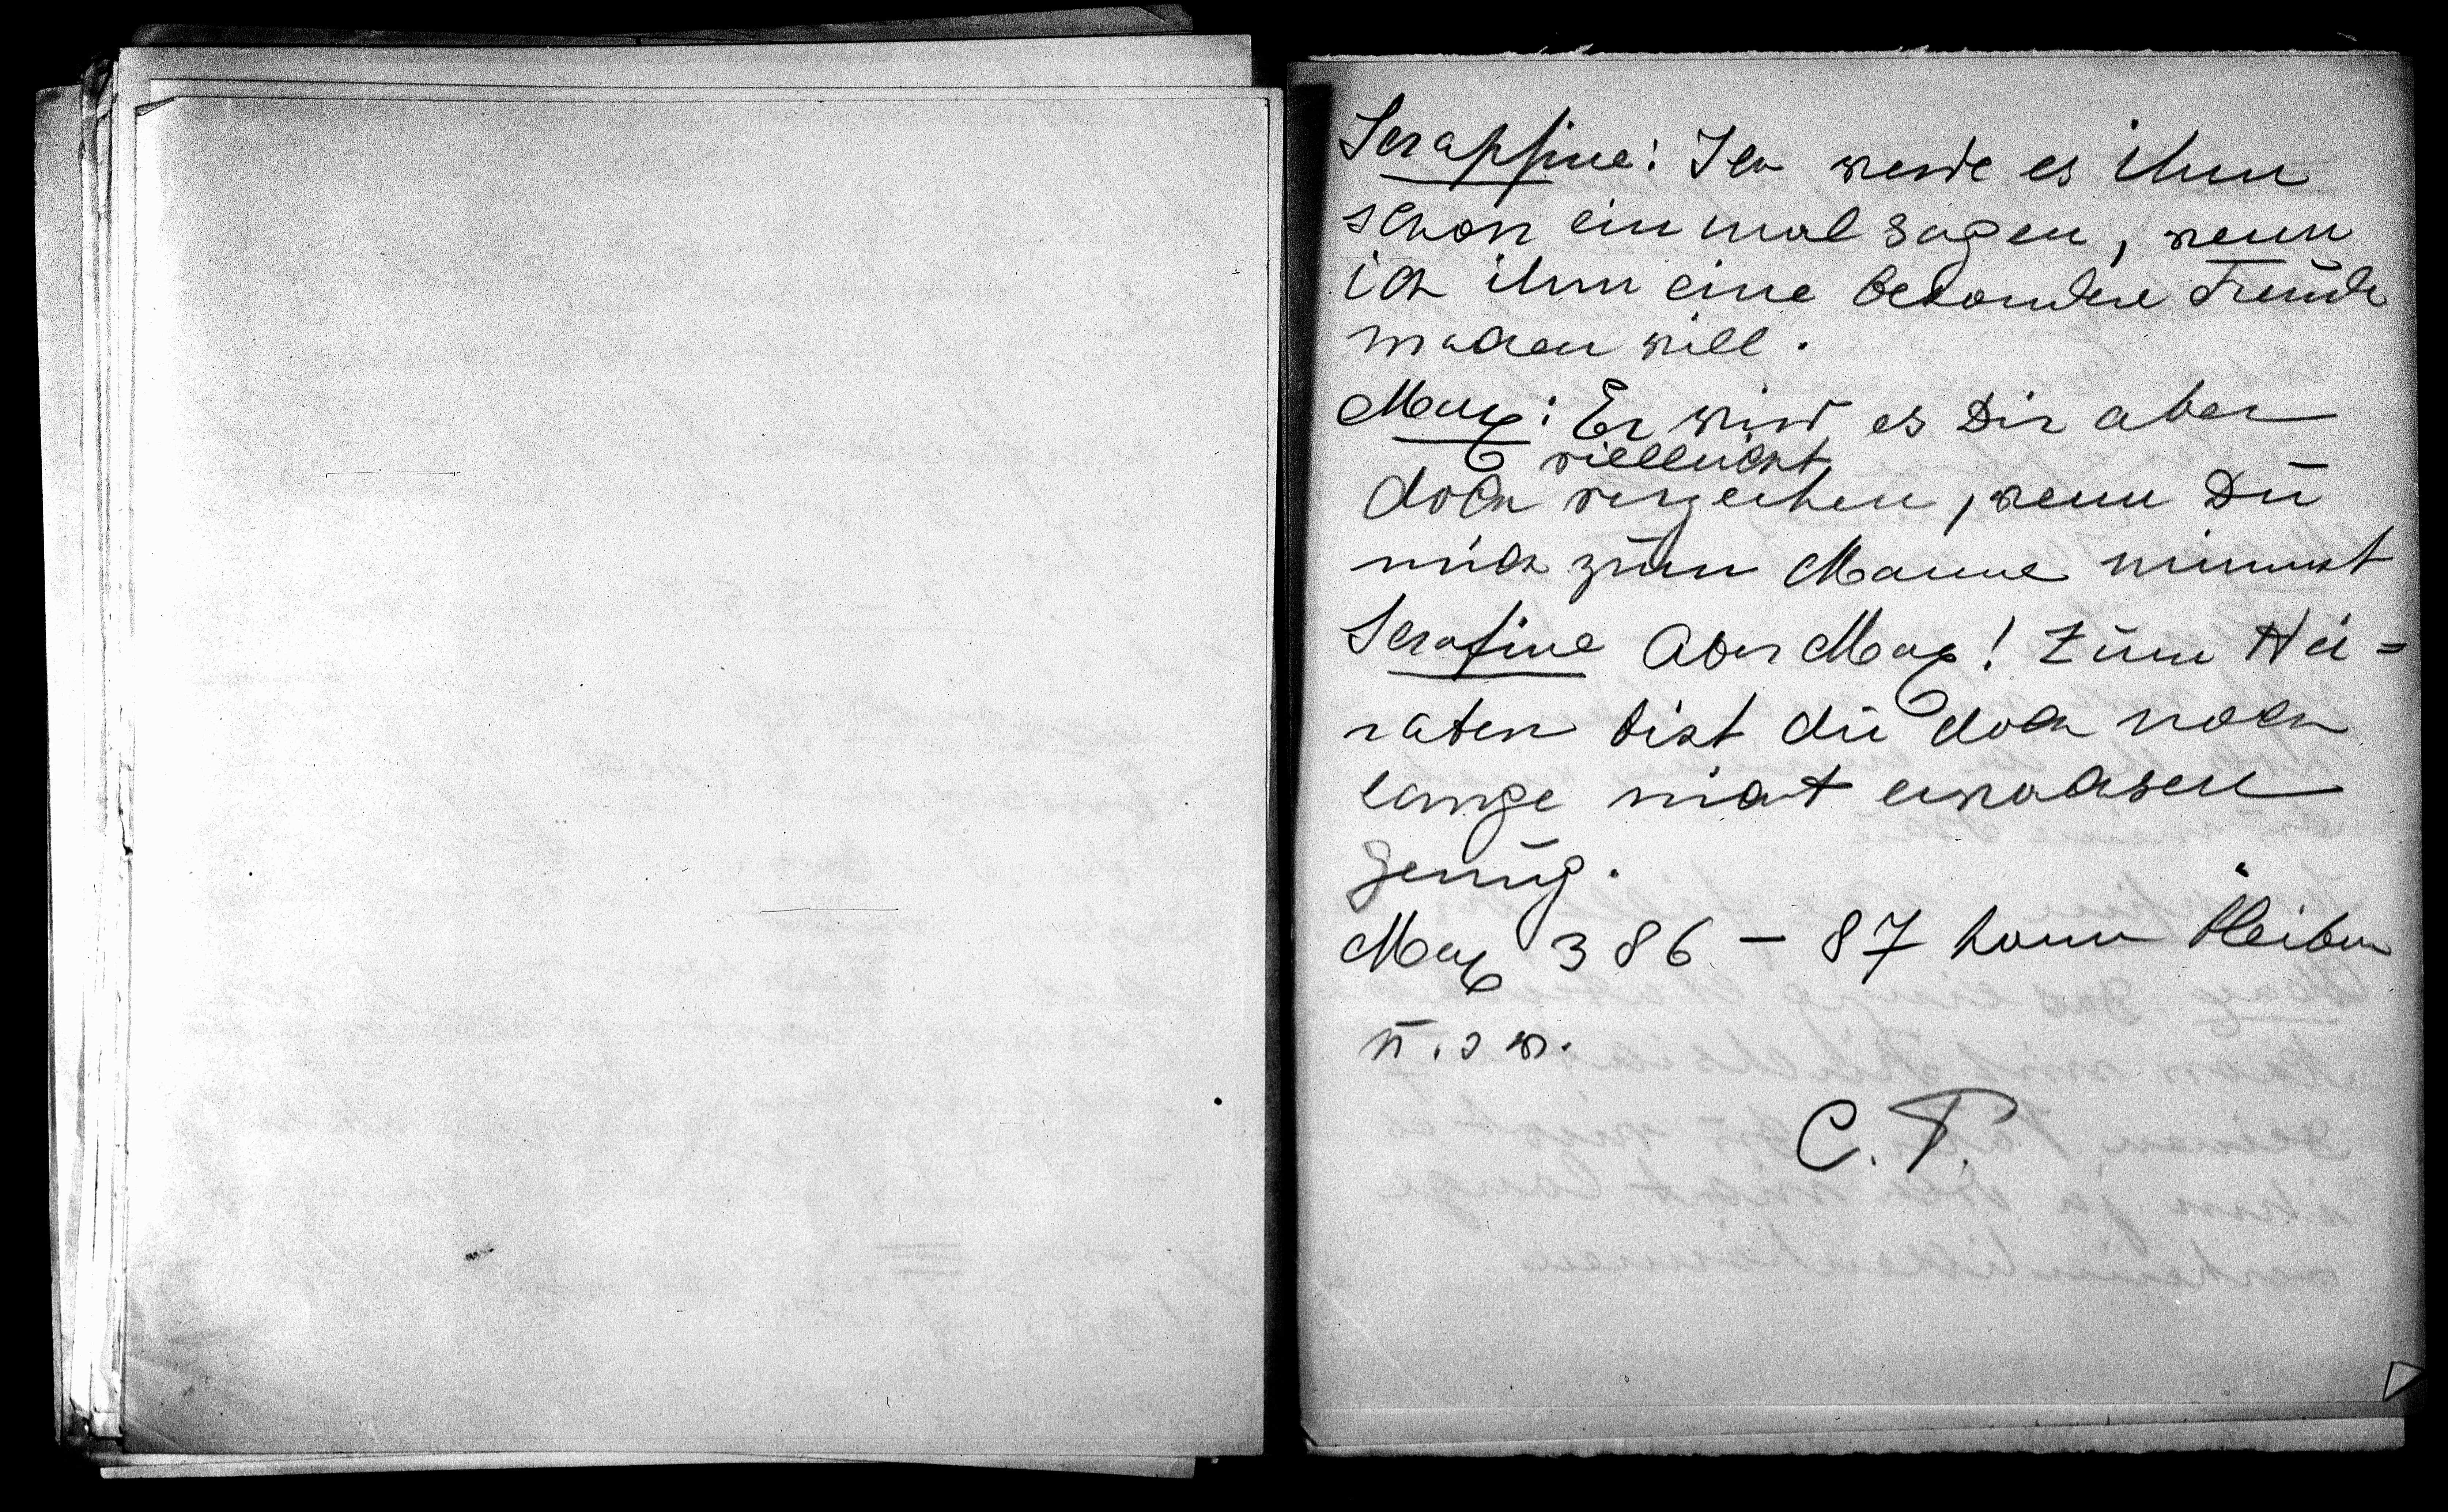 Serapfine: Ich werde es ihm
schon einmal sagen, wenn
ich ihm eine besondere Freude
machen will.
Max: Er wird es Dir aber
vielleicht
doch verzeihen, wenn Dū
mich zūm Manne nimmst
Serafine Aber Max! Zūm Hei=
raten bist dū doch noch
lange nicht erwachsen
genūg.
Max 386 - 87 kann bleiben
ū. s w.
C. T.